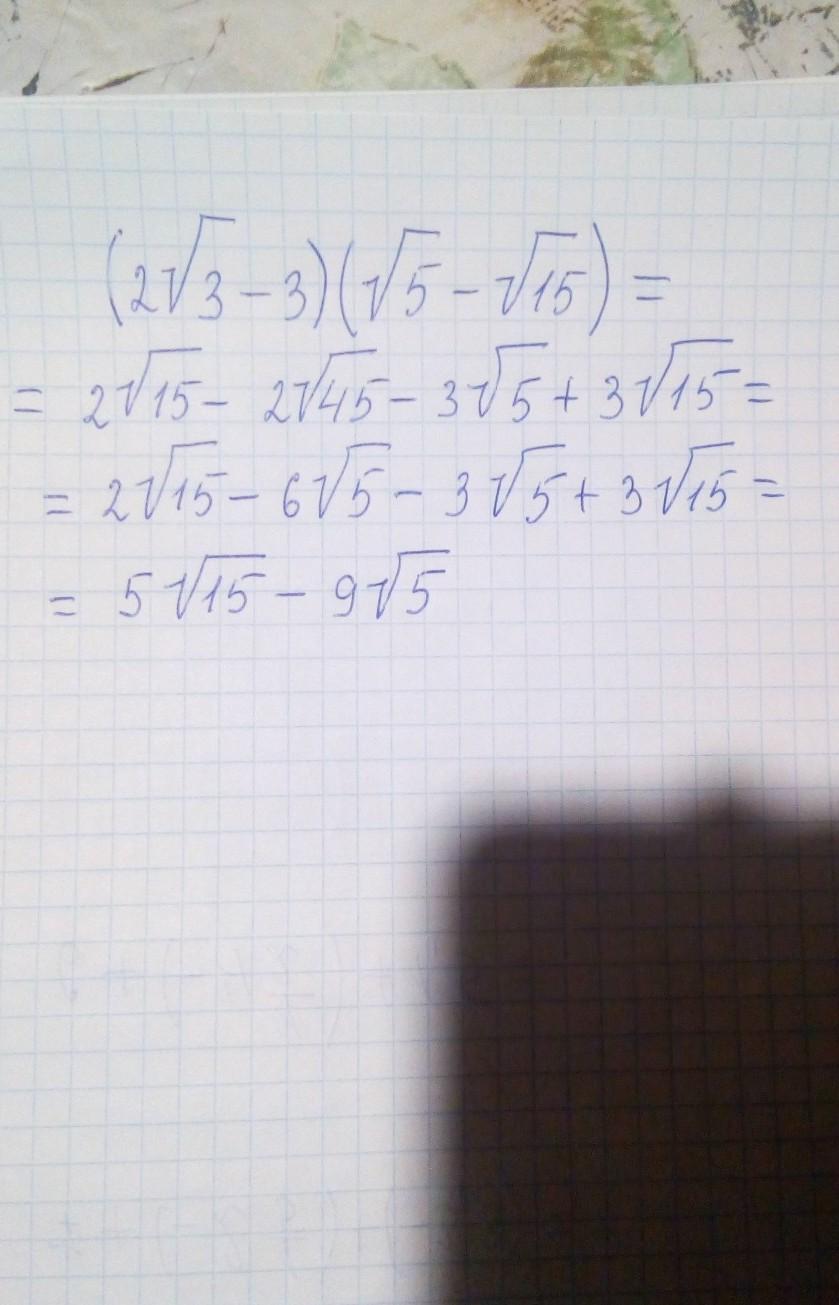 (2√3 - 3)(√5 - √15) =
= 2√15 - 2√45 - 3√5 + 3√15 =
= 2√15 - 6√5 - 3√5 + 3√15 =
= 5√15 - 9√5